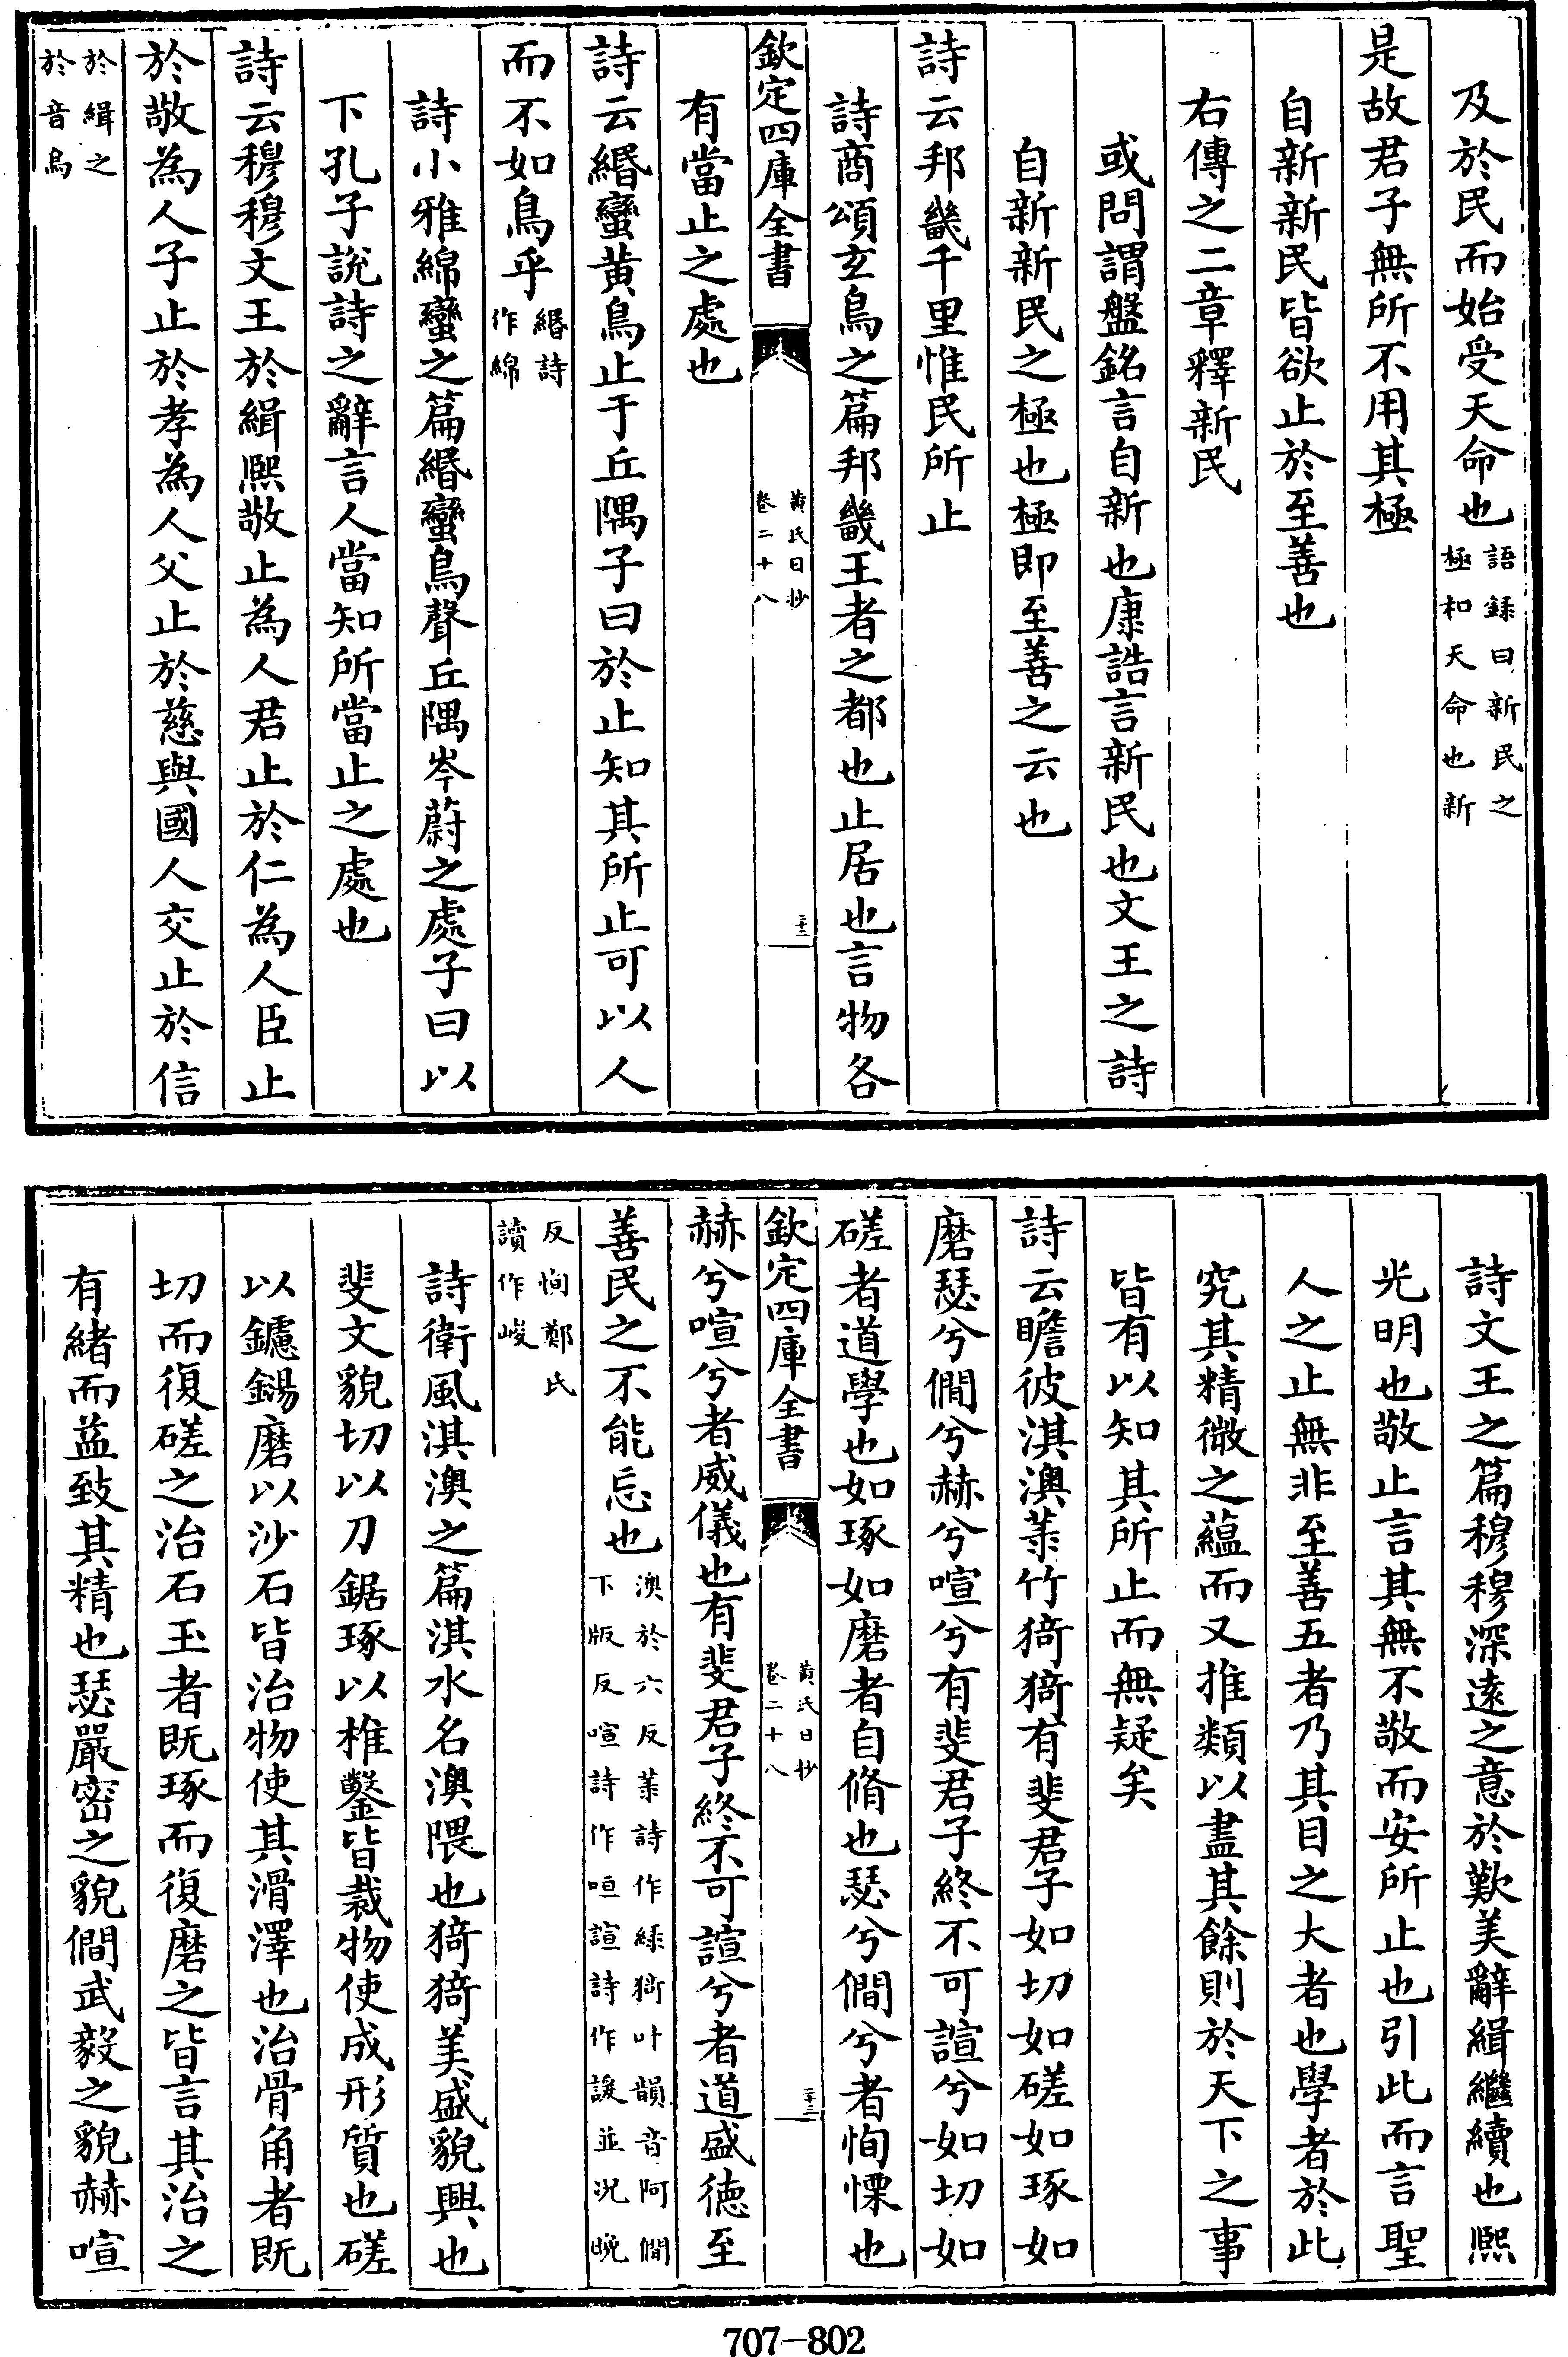 及於民而始受天命也語録曰新民之
極和天命也新
是故君子無所不用其極
自新新民皆欲止於至善也
右傳之二章釋新民
或問謂盤銘言自新也康誥言新民也文王之詩
自新新民之極也極即至善之云也
詩云邦畿千里惟民所止
詩商頌玄鳥之篇邦畿王者之都也止居也言物各
欽定四庫全書
黄氏日抄
卷二十八
二十二
有當止之處也
詩云緡蠻黄鳥止于丘隅子曰於止知其所止可以人
而不如鳥乎緡詩
作綿
詩小雅綿蠻之篇緡蠻鳥聲丘隅岑蔚之處子曰以
下孔子說詩之辭言人當知所當止之處也
詩云穆穆文王於緝熙敬止為人君止於仁為人臣止
於敬為人子止於孝為人父止於慈與國人交止於信
於緝之
於音烏
詩文王之篇穆穆深遠之意於歎美辭緝繼續也熙
光明也敬止言其無不敬而安所止也引此而言聖
人之止無非至善五者乃其目之大者也學者於此
究其精微之蘊而又推類以盡其餘則於天下之事
皆有以知其所止而無疑矣
詩云瞻彼淇澳菉竹猗猗有斐君子如切如磋如琢如
磨瑟兮僩兮赫兮喧兮有斐君子終不可諠兮如切如
磋者道學也如琢如磨者自脩也瑟兮僩兮者恂慄也
欽定四庫全書
黄氏日抄
卷二十八
二十三
赫兮喧兮者威儀也有斐君子終不可諠兮者道盛德至
善民之不能忘也澳於六反菉詩作綠猗叶韻音阿僩
下版反喧詩作咺諠詩作諼並况晚
反恂鄭氏
讀作峻
詩衛風淇澳之篇淇水名澳隈也猗猗美盛貌興也
斐文貌切以刀鋸琢以椎鑿皆裁物使成形質也磋
以鑢鐋磨以沙石皆治物使其滑澤也治骨角者既
切而復磋之治石玉者既琢而復磨之皆言其治之
有緒而益致其精也瑟嚴密之貌僩武毅之貌赫喧
707-802